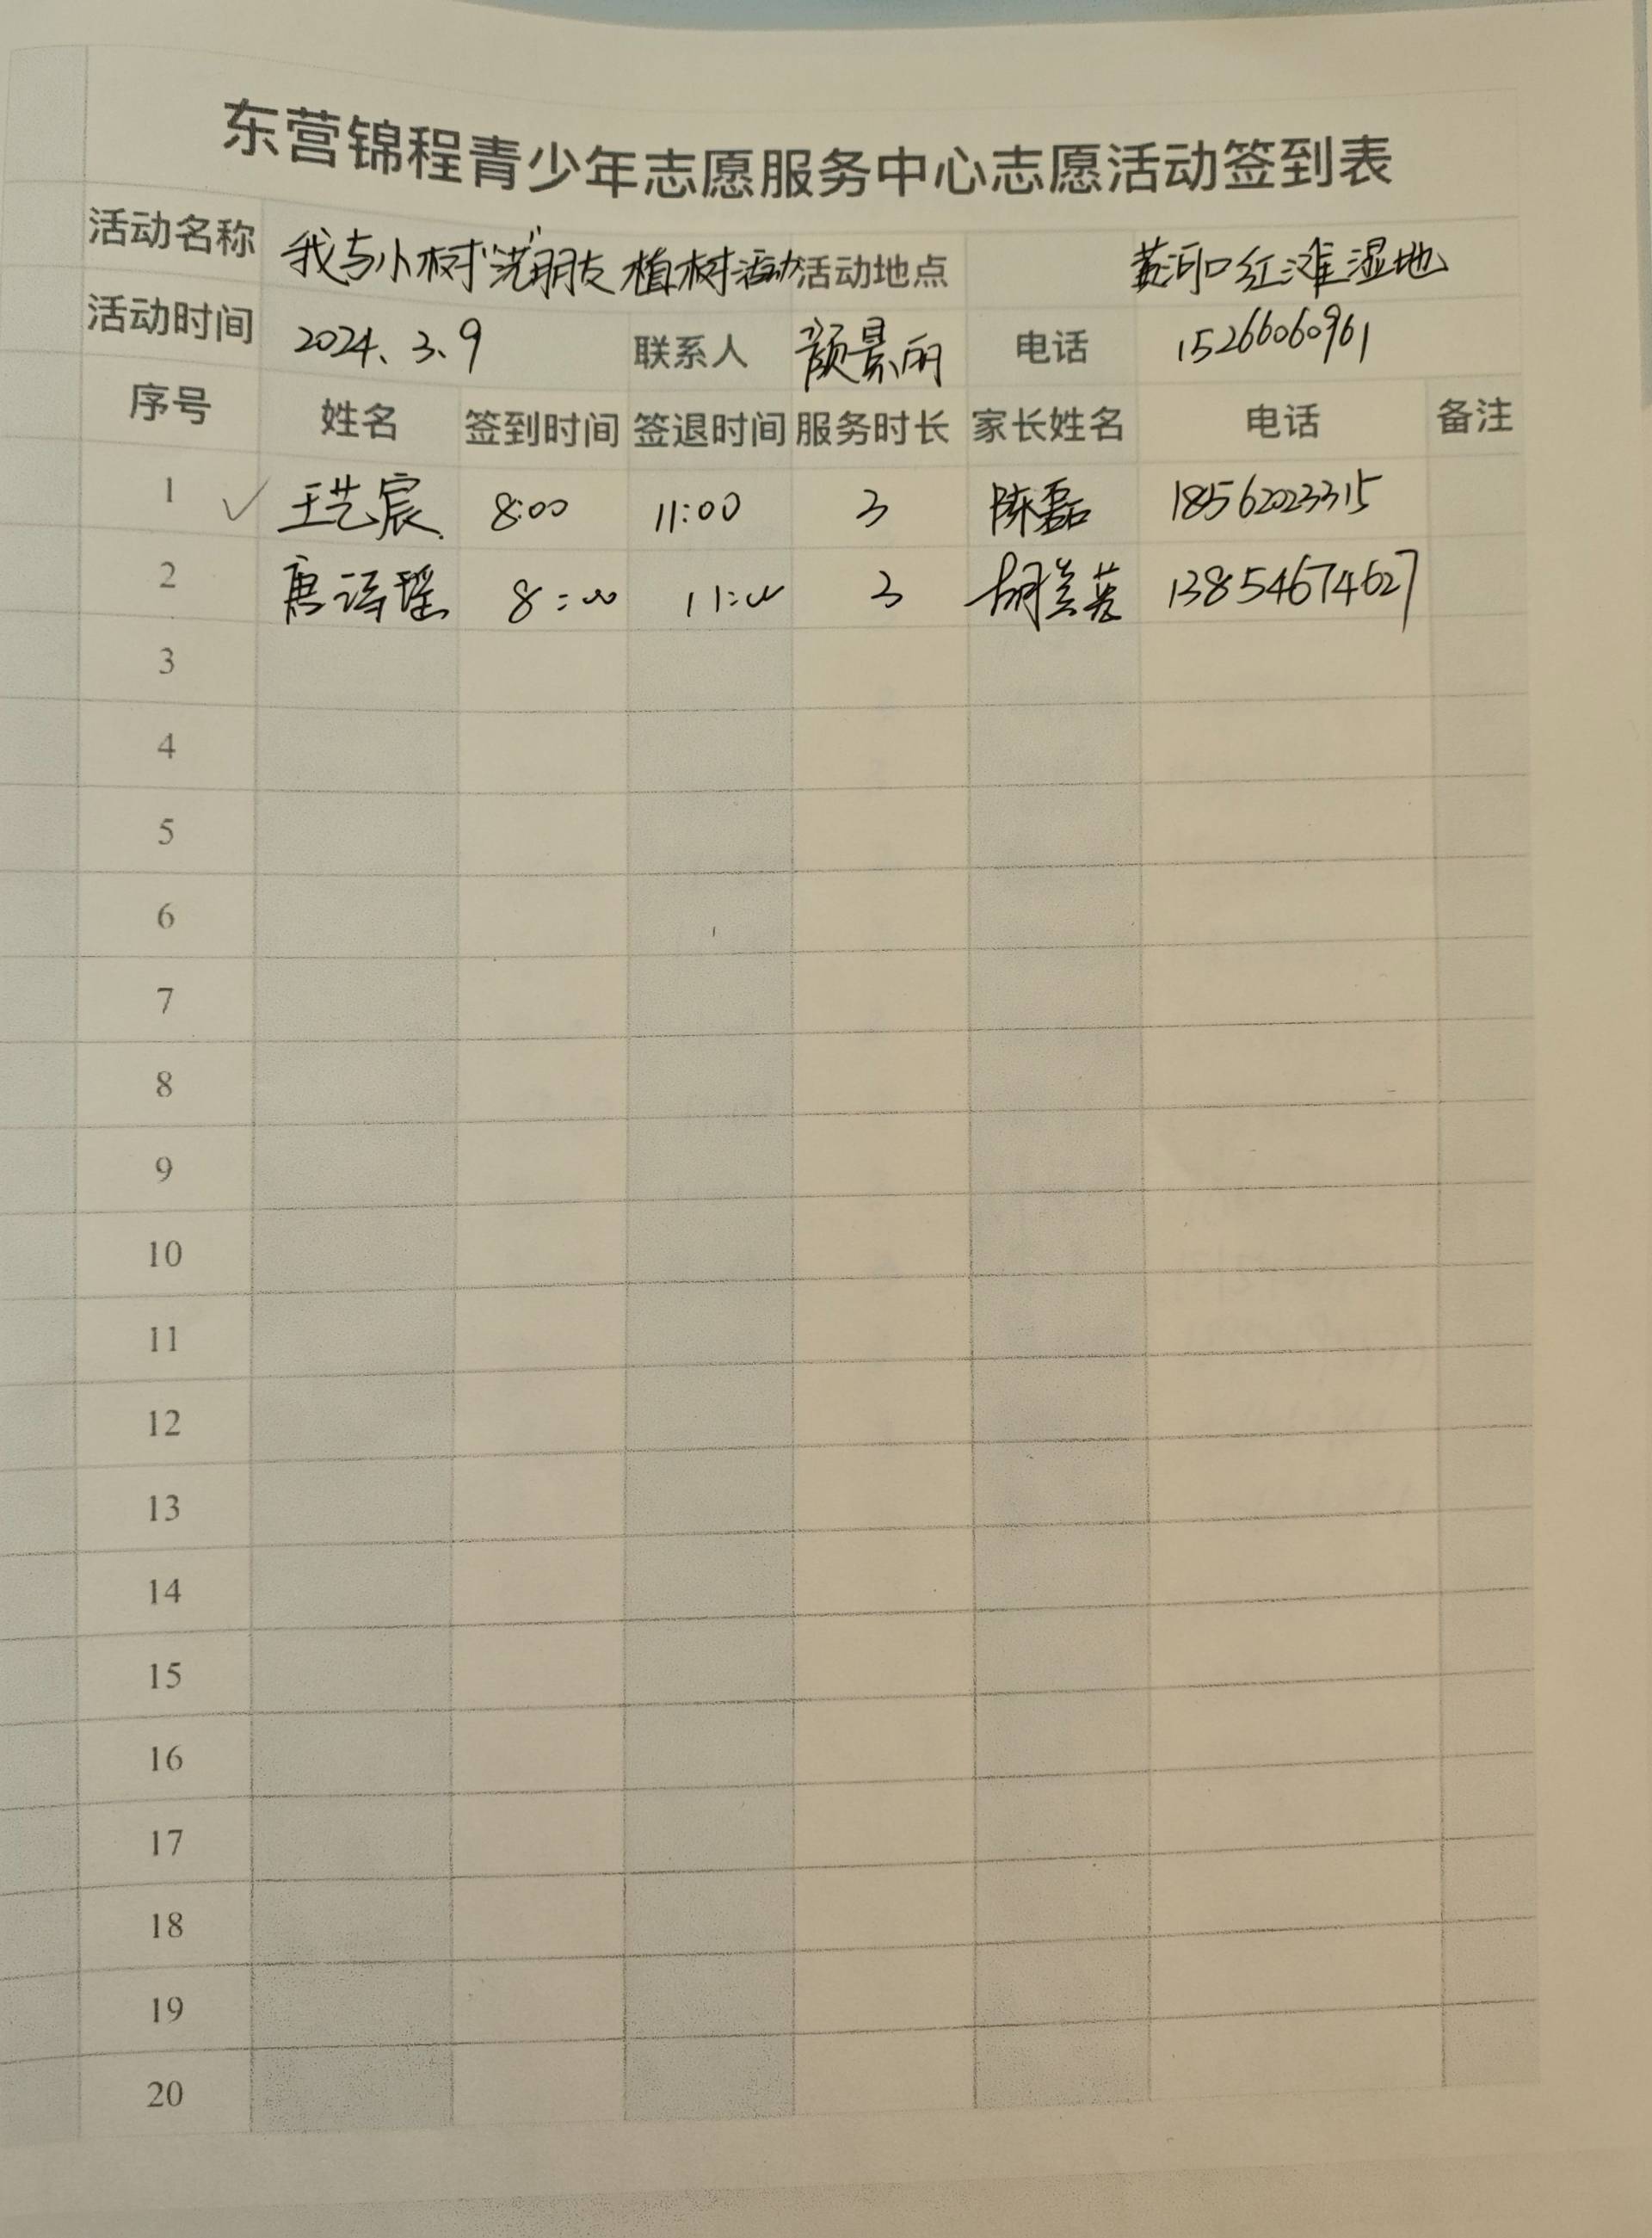 东营锦程青少年志愿服务中心志愿活动签到表
活动名称 我与小树"洸"朋友 植树活动 活动地点 黄河口红滩湿地
活动时间 2024.3.9 联系人 颜景丽 电话 15266060961
序号 姓名 签到时间 签退时间 服务时长 家长姓名 电话 备注
1 ✓ 王艺宸 8:00 11:00 3 陈磊 18562023315
2 唐诗瑶 8:00 11:00 3 胡兰英 13854674627
3
4
5
6
7
8
9
10
11
12
13
14
15
16
17
18
19
20